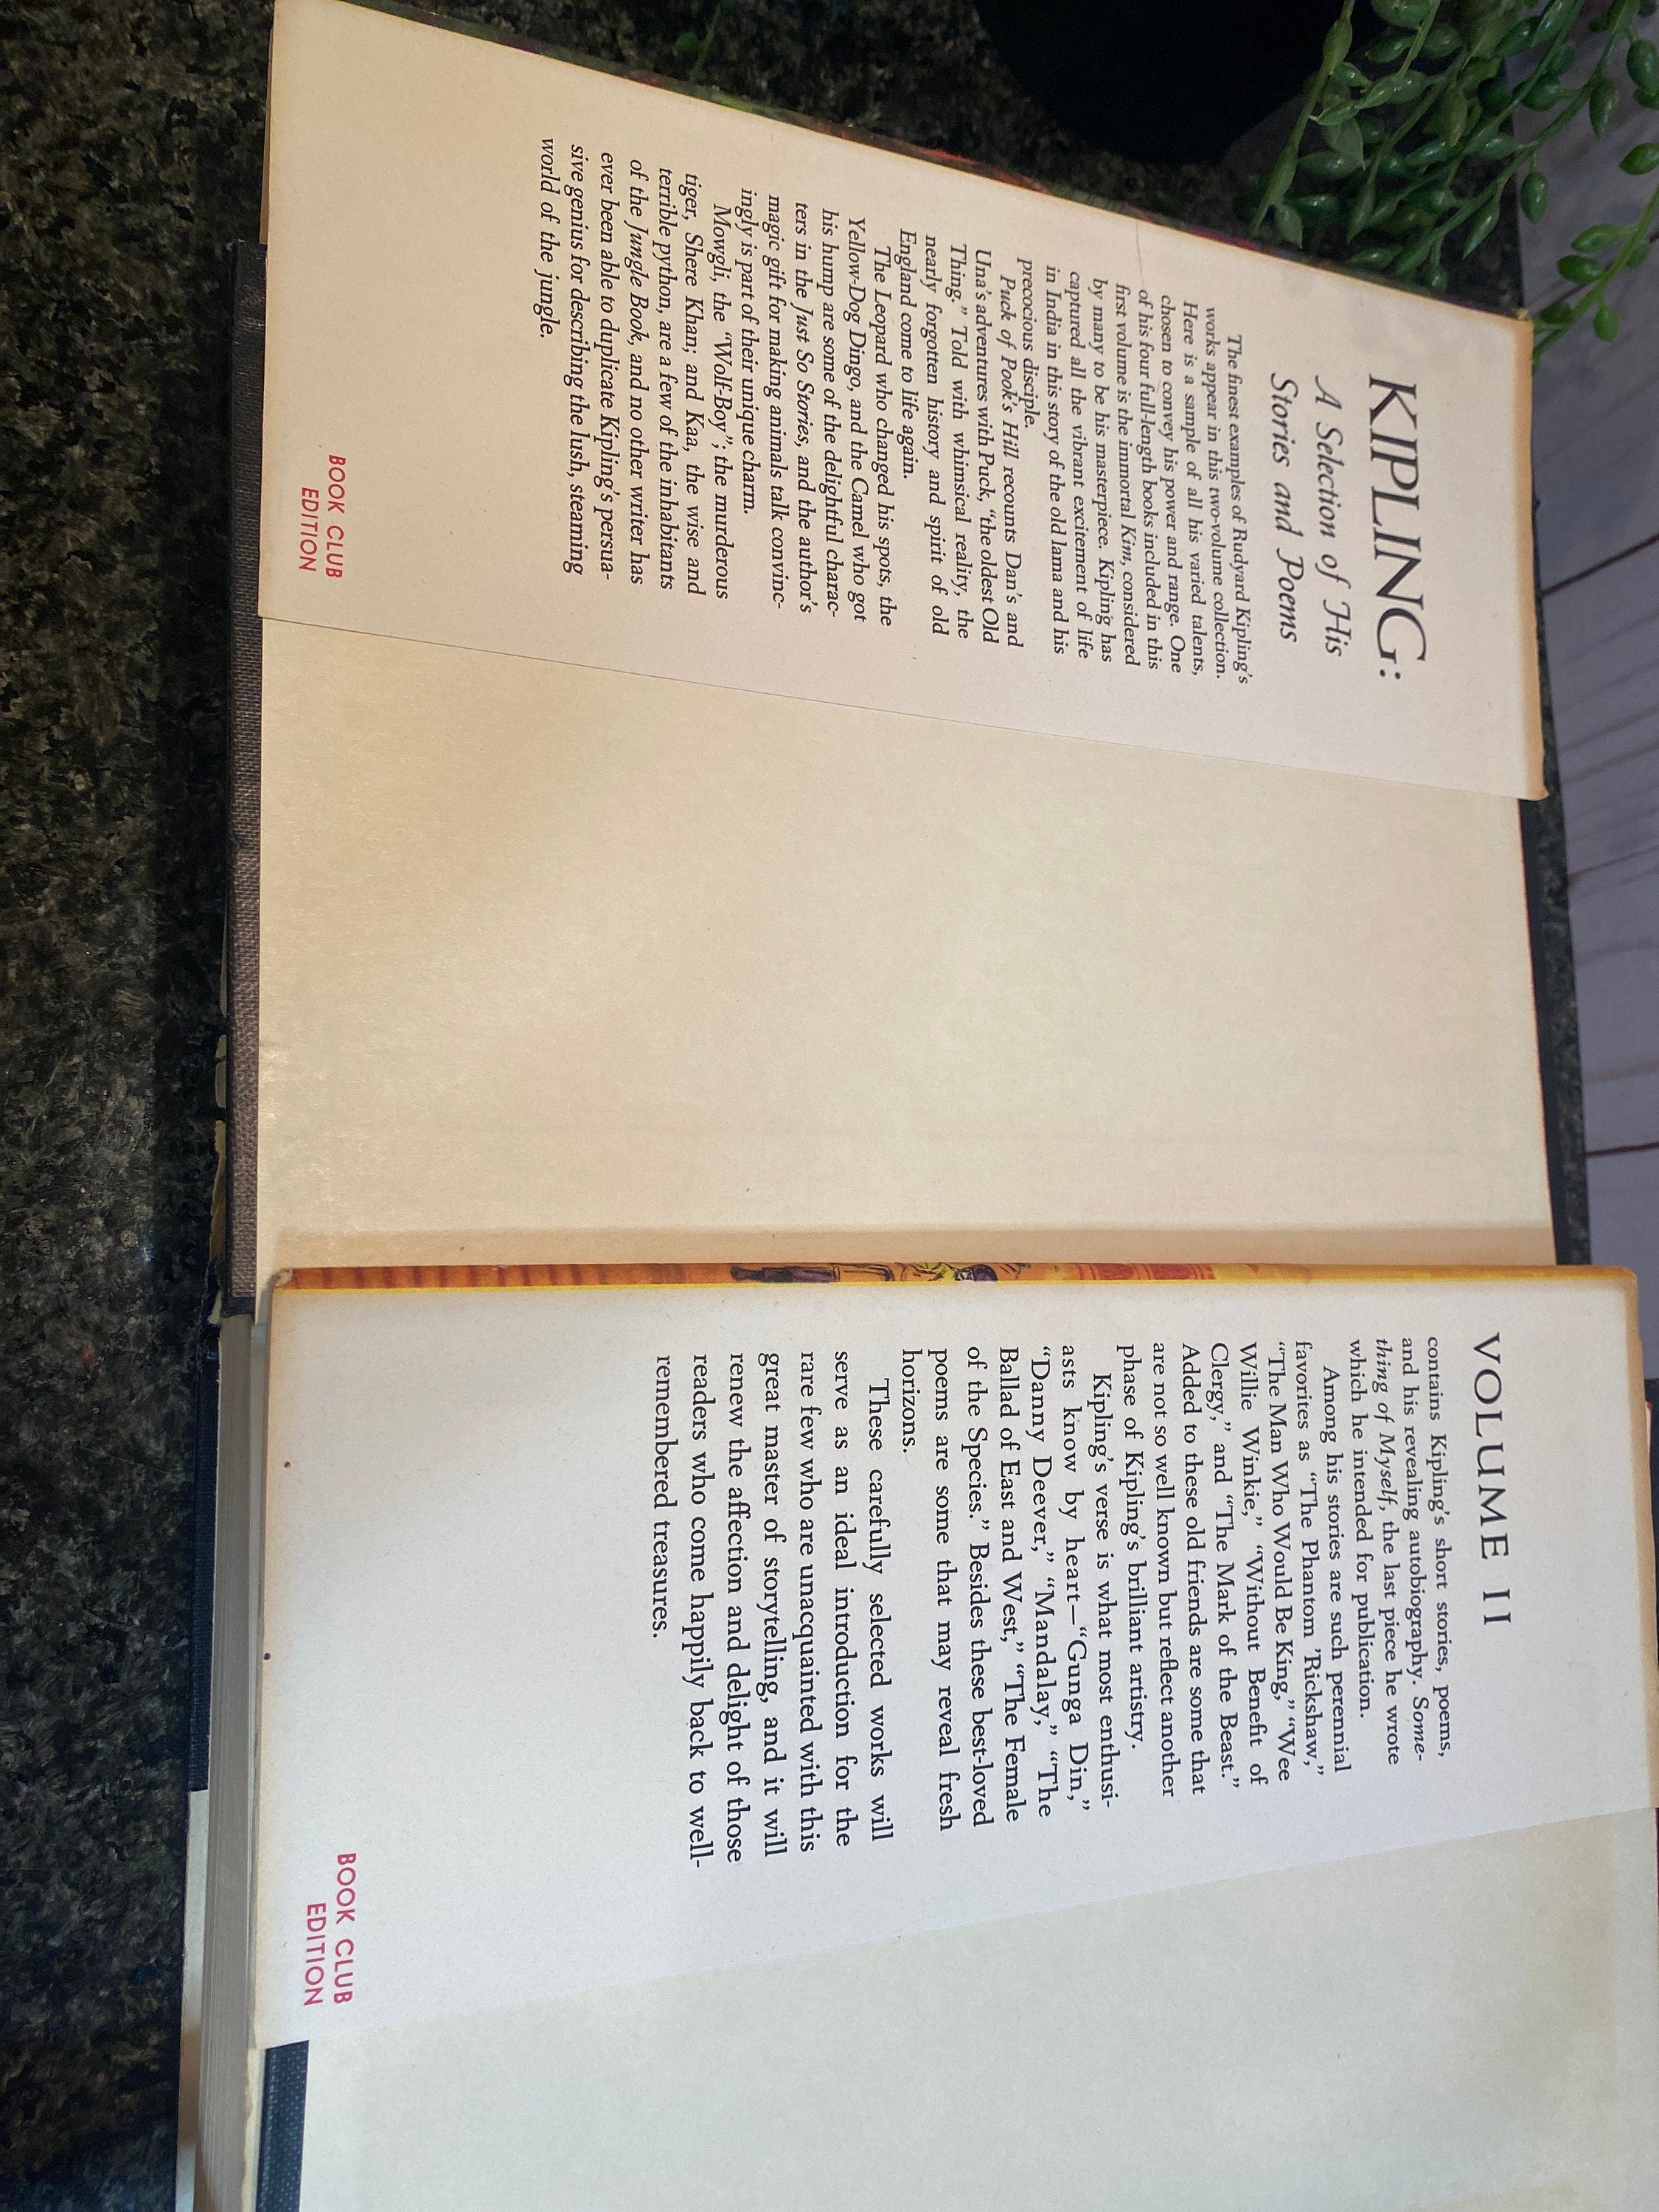 KIPLING:
A Selection of His
Stories and Poems
The finest examples of Rudyard Kipling's
works appear in this two-volume collection.
Here is a sample of all his varied talents,
chosen to convey his power and range. One
of his four full-length books included in this
first volume is the immortal Kim, considered
by many to be his masterpiece. Kipling has
captured all the vibrant excitement of life
in India in this story of the old lama and his
precocious disciple.
Puck of Pook's Hill recounts Dan's and
Una's adventures with Puck, “the oldest Old
Thing.” Told with whimsical reality, the
nearly forgotten history and spirit of old
England come to life again.
The Leopard who changed his spots, the
Yellow-Dog Dingo, and the Camel who got
his hump are some of the delightful charac-
ters in the Just So Stories, and the author's
magic gift for making animals talk convinc-
ingly is part of their unique charm.
Mowgli, the “Wolf-Boy”; the murderous
tiger, Shere Khan; and Kaa, the wise and
terrible python, are a few of the inhabitants
of the Jungle Book, and no other writer has
ever been able to duplicate Kipling's persua-
sive genius for describing the lush, steaming
world of the jungle.
BOOK CLUB
EDITION
VOLUME II
contains Kipling's short stories, poems,
and his revealing autobiography. Some-
thing of Myself, the last piece he wrote
which he intended for publication.
Among his stories are such perennial
favorites as “The Phantom 'Rickshaw,”
“The Man Who Would Be King,” “Wee
Willie Winkie,” “Without Benefit of
Clergy,” and “The Mark of the Beast.”
Added to these old friends are some that
are not so well known but reflect another
phase of Kipling's brilliant artistry.
Kipling's verse is what most enthusi-
asts know by heart—“Gunga Din,”
“Danny Deever,” “Mandalay,” “The
Ballad of East and West,” “The Female
of the Species.” Besides these best-loved
poems are some that may reveal fresh
horizons.
These carefully selected works will
serve as an ideal introduction for the
rare few who are unacquainted with this
great master of storytelling, and it will
renew the affection and delight of those
readers who come happily back to well-
remembered treasures.
BOOK CLUB
EDITION